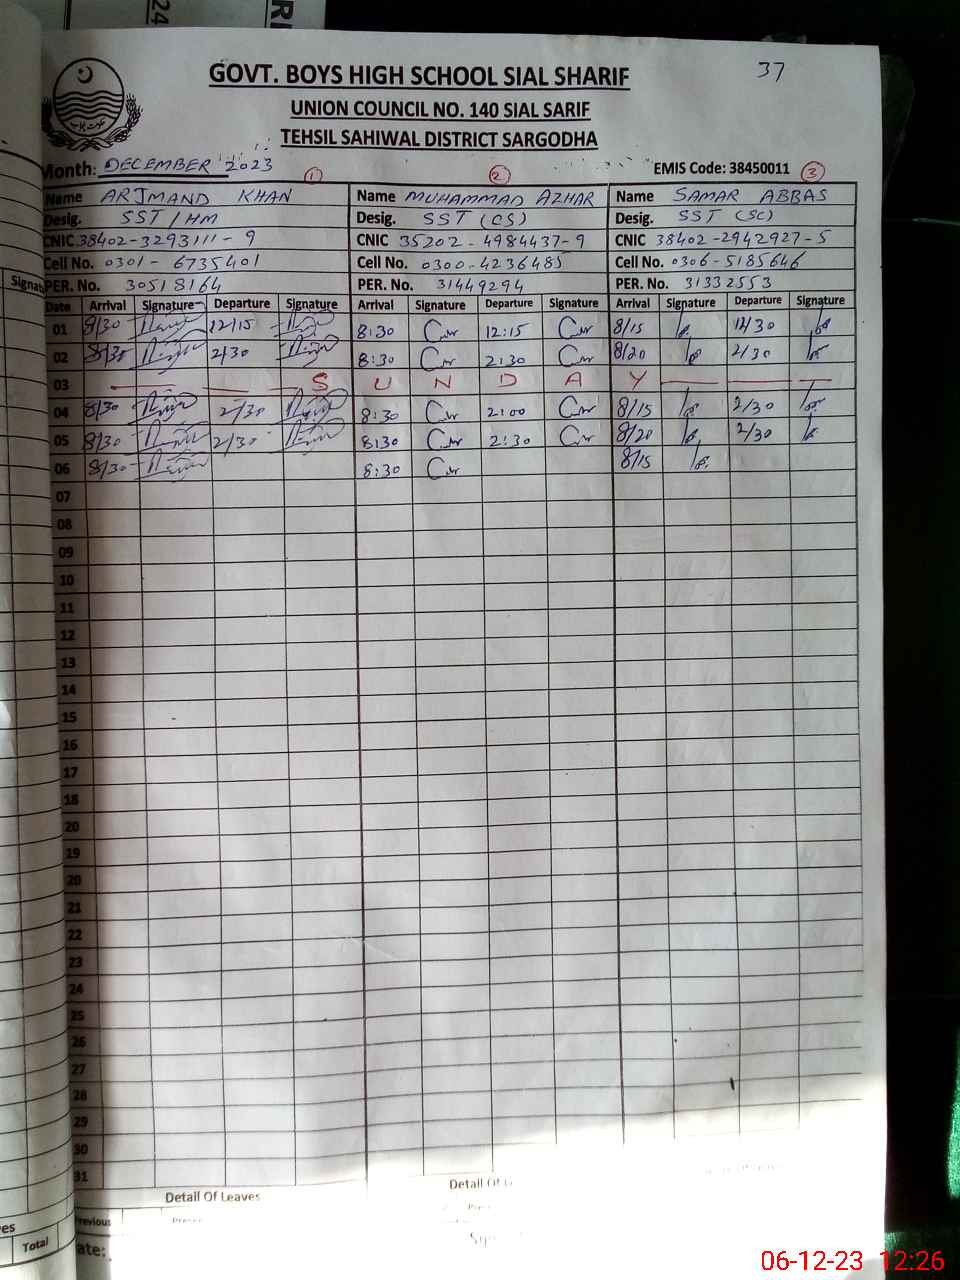 GOVT. BOYS HIGH SCHOOL SIAL SHARIF 37
UNION COUNCIL NO. 140 SIAL SARIF
TEHSIL SAHIWAL DISTRICT SARGODHA
Month: DECEMBER 2023 EMIS Code: 38450011
1 2 3
Name ARJMAND KHAN Name MUHAMMAD AZHAR Name SAMAR ABBAS
Desig. SST/HM Desig. SST (CS) Desig. SST (SC)
CNIC 38402-3293111-9 CNIC 35202-4984437-9 CNIC 38402-2942927-5
Cell No. 0301-6735401 Cell No. 0300-4236485 Cell No. 0306-5185646
PER. No. 30518164 PER. No. 31449294 PER. No. 31332553
Date Arrival Signature Departure Signature Arrival Signature Departure Signature Arrival Signature Departure Signature
01 8/30 12/15 8:30 12:15 8/15 12/30
02 8/30 2/30 8:30 2:30 8/20 2/30
03 S U N D A Y
04 8/30 2/30 8:30 2:00 8/15 2/30
05 8/30 2/30 8:30 2:30 8/20 2/30
06 8/30 8:30 8/15
07
08
09
10
11
12
13
14
15
16
17
18
20
19
20
21
22
23
24
25
26
27
28
29
30
31
Detail Of Leaves Detail Of
Previous
Total
06-12-23 12:26